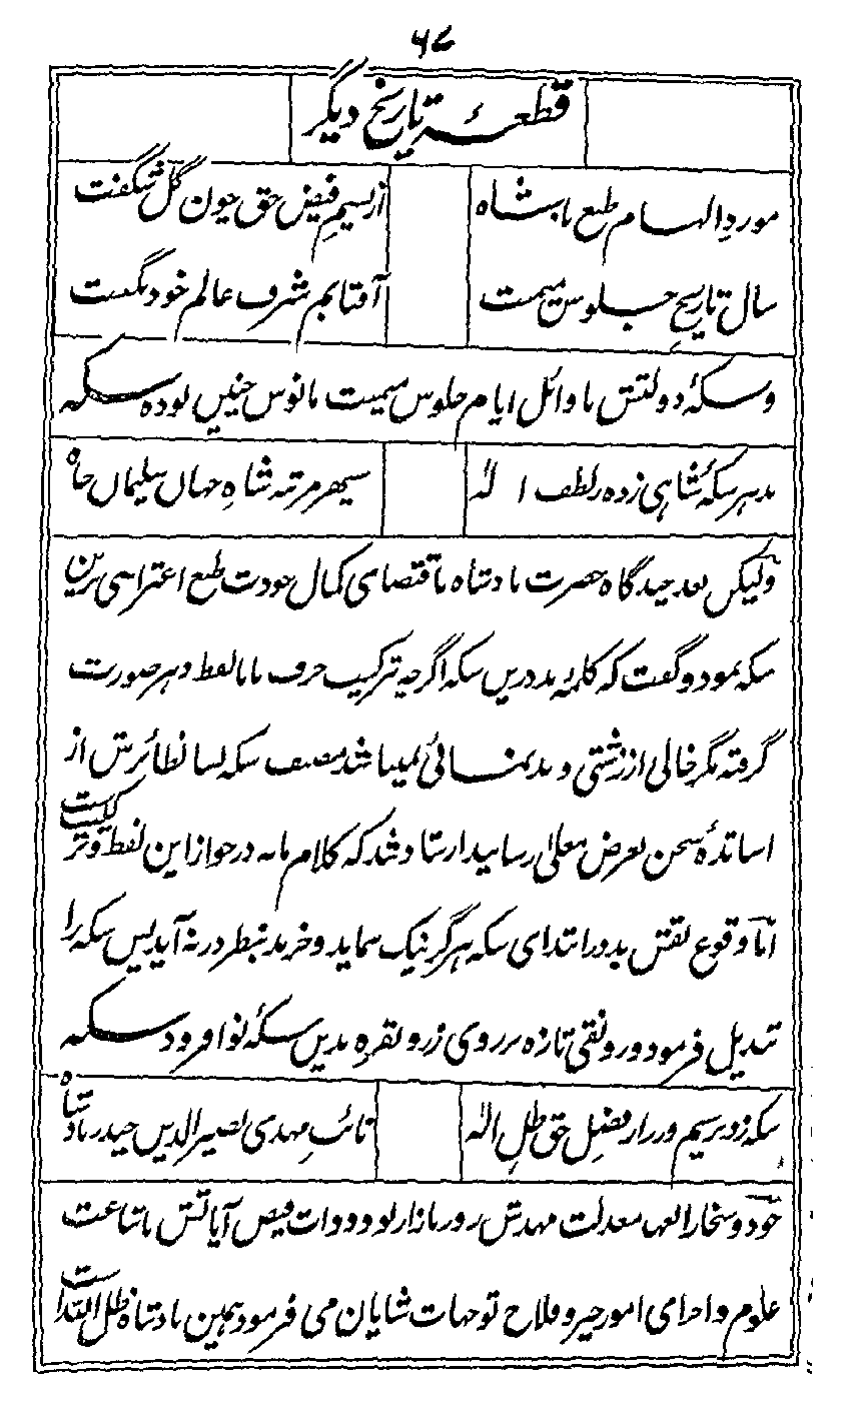 ۶۷
قطعۂ تاریخ دیگر
مورد الہام طبع بادشاہ از نسیم فیض حق چون گل شگفت
سال تاریخ جلوس میمنت آفتابم شرف عالم خود بگفت
و سکۂ دولتش باوائل ایام جلوس میمنت مانوس چنیں بودہ سکہ
بدہر سکۂ شاہی زدہ ز لطف الہٰ سپہر مرتبہ شاہِ جہاں سلیماں جاہ
ولیکن بعد چندگاہ حضرت بادشاہ باقتضای کمال جودت طبع اعتراضی برین
سکہ نمود و گفت کہ کلمۂ بد دریں سکہ اگرچہ ترکیب حرف با بالفظ دہر صورت
گرفتہ مگر خالی از زشتی و بدنمائی نمیباشد مصنف سکہ بسا نظائرش از
اساتذۂ سخن بعرض معلیٰ رسانید ارشاد شد کہ کلام ما نہ در جواز این لفظ و ترکیب ست
امّا وقوع نقش بد در ابتدای سکہ ہرگز نیک ننماید و خرد بنظر در نہ آید پس سکہ را
تبدیل فرمود و رونقی تازہ برروی زر و نقرہ بدیں سکۂ نو افزود سکہ
سکہ زد بر سیم و زر از فضلِ حق ظلِ الہٰ نائبِ مہدی نصیر الدیں حیدر بادشاہ
جود و سخا را بعہد معدلت مہدش روز بازار بود و ذات فیض آیاتش باشاعت
علوم و اجرای امور خیر و فلاح توجہات شایان می فرمود ہمین بادشاہ ظل اللہ است